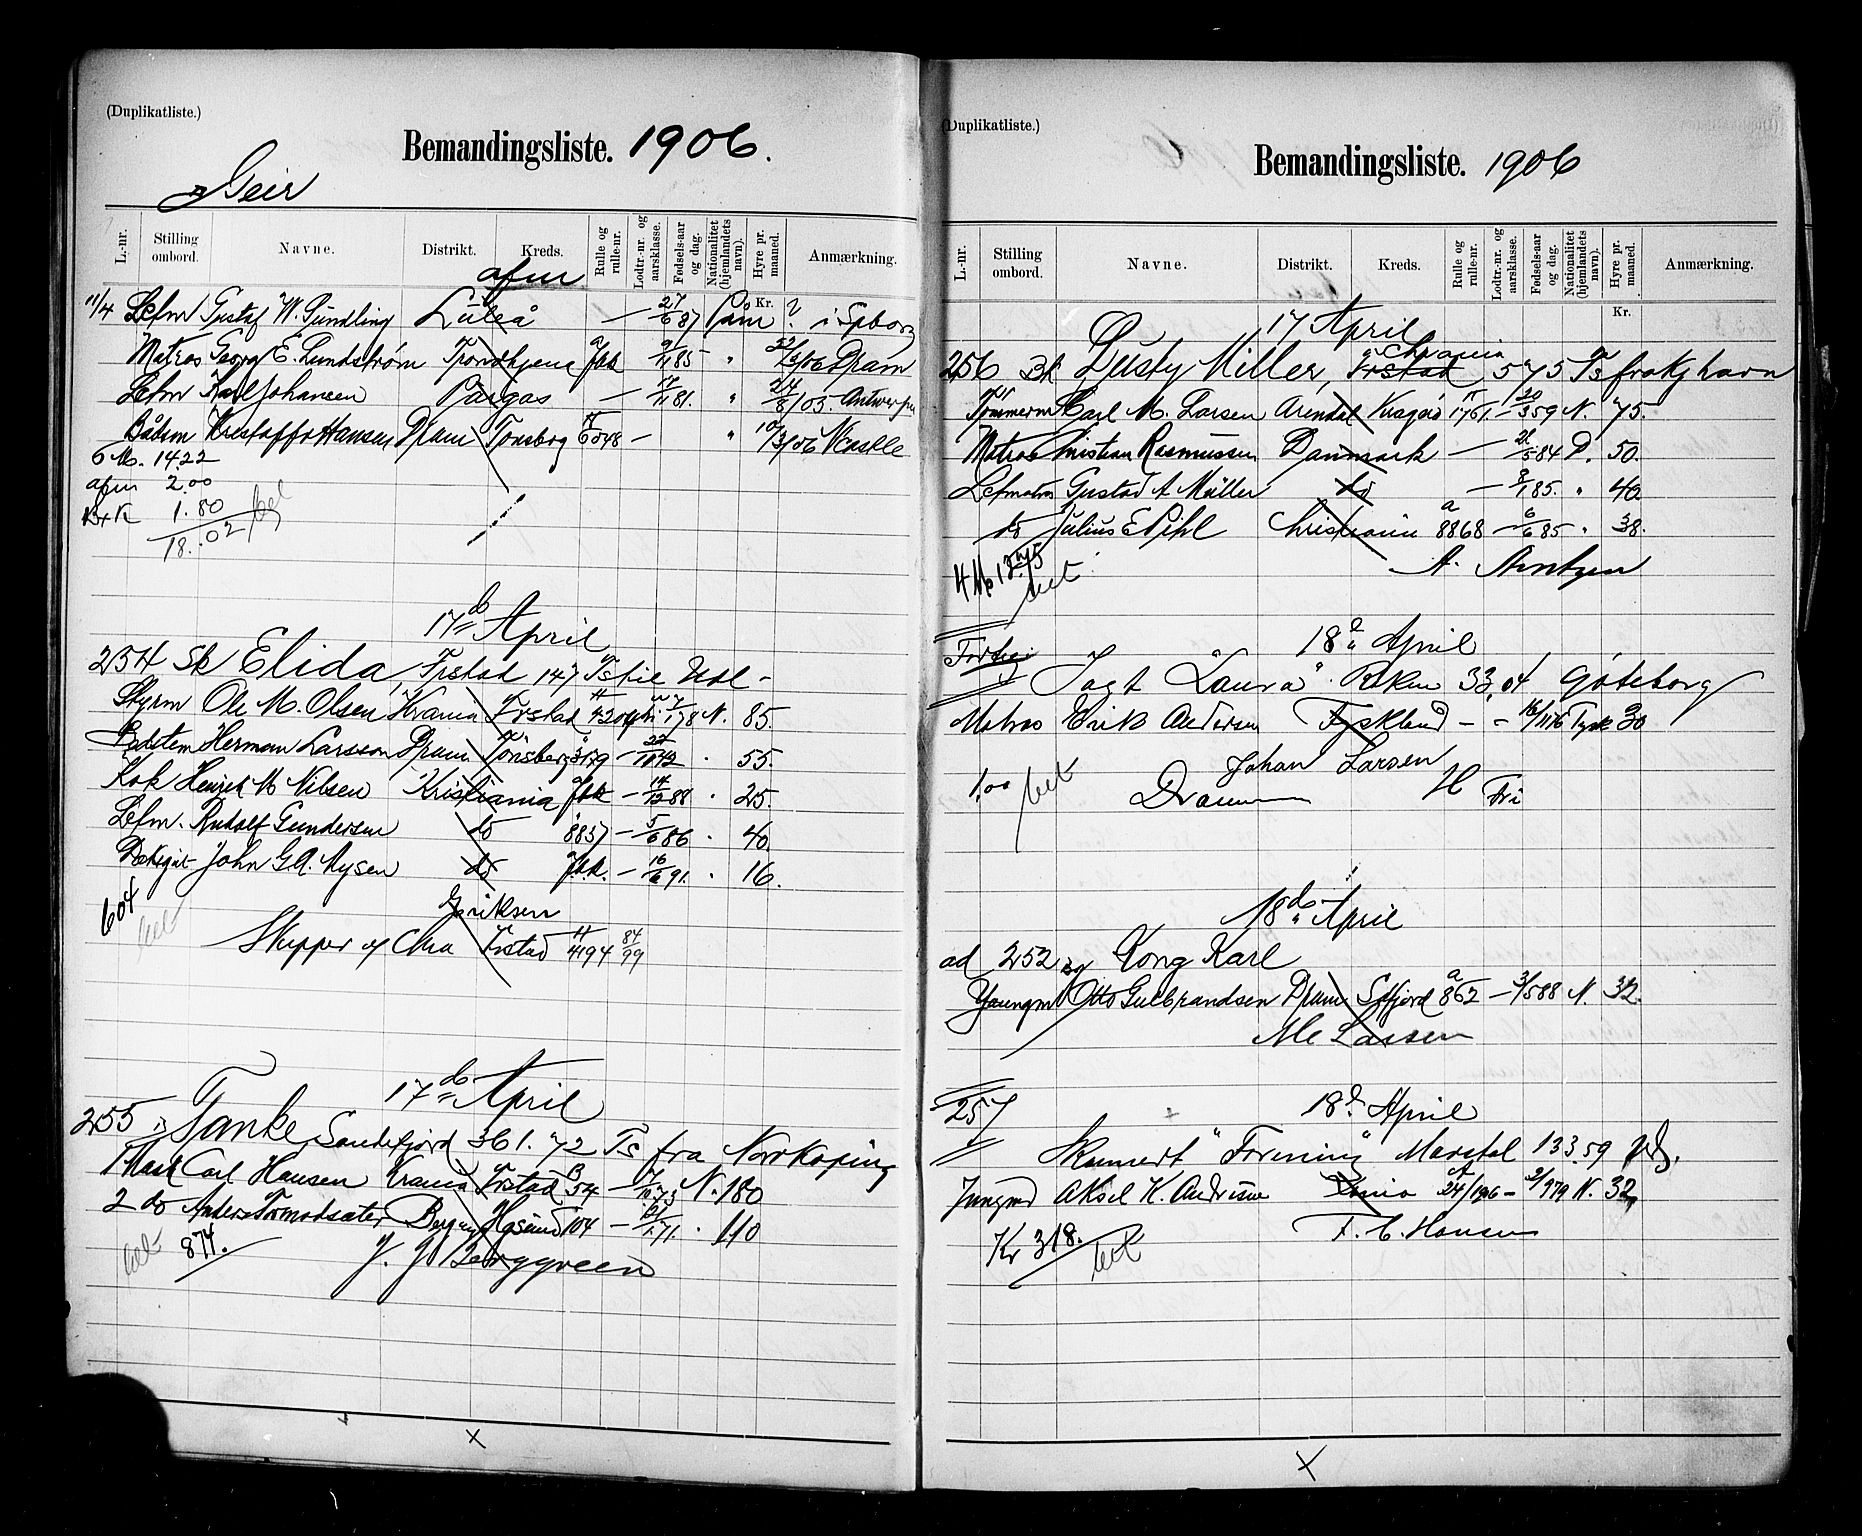 (Duplikatliste.)
Bemandingsliste. 1906.
Geir
L.-nr. Stilling ombord. Navne. Distrikt. Kreds. Rulle og rulle-nr. Lodtr.-nr. og aarsklasse. Fødsels-aar og dag. Nationalitet (hjemlandets navn). Hyre pr. maaned. Anmærkning.
afm Kr.
11/4 Letm Gustaf W. Sundling Luleå — 27/6 87 ? i Spborg
Matros Georg E. Lundstrøm Trondhjem 85 " 06 Dram
Letm Karl Johansen Pargas — 81. " 24/8/05. Antwerpen
Båtsm Kristoffer Hansen Dram Tønsberg 6048 — " 10/3/06 Ncastle
6 M. 1422
afm 2.00
1.80
18.02 bet
17de April
254 Sk Elida, Frstad 147 Ts
Styrm Ole M. Olsen Krania Frstad 4204 78 N. 85.
Bedstem Herman Larsson Dram Tönsberg 3179 — 22/11 42 . 55.
Kok Henrik M Nilsen Kristiania Jbk — 14/12 88 . 25.
Letm. Rudolf Gundersen do 8837 — 5/6 86 . 40.
Dæksgut John G.A. Mysen do Jbk. — 16/6 91. . 16.
604 bet
Eriksen
Skipper og Chra Frstad 4194 84/99
17de April
255 Tanke Sandefjord 361.72 Ts fra Norrköping
1 Mask Carl Hansen Krania Frstad 54 — 73 N. 180
2 do Anders Tormodsæter Bergen 104 — 71. . 110
bet 874.
J. J Berggreen
(Duplikatliste.)
Bemandingsliste. 1906
L.-nr. Stilling ombord. Navne. Distrikt. Kreds. Rulle og rulle-nr. Lodtr.-nr. og aarsklasse. Fødsels-aar og dag. Nationalitet (hjemlandets navn). Hyre pr. maaned. Anmærkning.
Kr.
17 April
Chrania
256 Bk Dusty Miller, Frstad 575 Ts fra Kjhavn
Tømmerm Carl M. Larsen Arendal Kragerö 1761. — 20/3 59 N. 75.
Matros Christian Rasmussen Danmark — 84 D. 50.
Letmatros Gustav A Müller do — 85. " 40.
do Julius E Pihl Christiania a 8868 — 6/6 85 " 38.
A. Arntzen
4 M 13.75 bet
18de April
Jagt "Laura" 33,04 Göteborg
Matros Erik Andersen Tyskland - - 16/11 76 Tysk 30
Johan Larsen
1,00 bet Dram H Fri
18de April
ad 252 Kong Karl
Youngm Otto Gulbrandsen Dram Sfjord a 862 — 3/5 88 N. 32.
Me Larsen
257 18de April
Skonnert "Forening" Marstal 133.59
Jungmd Aksel K. Andersen 24/1906 — 2/9 79 N. 32,
F. C. Hansen
Kr 318. bet